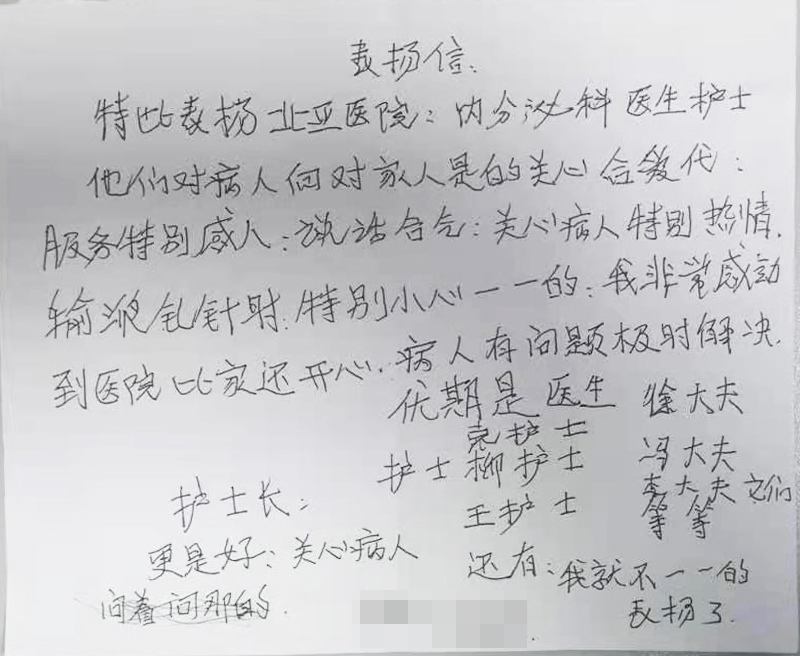 表扬信:
特此表扬北亚医院:内分泌科医生护士
他们对病人向对家人是的关心合
代:
服务特别感人:说话合气:关心病人特别热情.
输液扎针时:特别小心一一的:我非常感动
到医院比家还开心.病人有问题极时解决.
优期是医生 徐大夫
护士
护士柳护士 冯大夫
李大夫 它们
护士长: 王护士 等等
更是好:关心病人 还有:我就不一一的
问着问那的. 表扬了